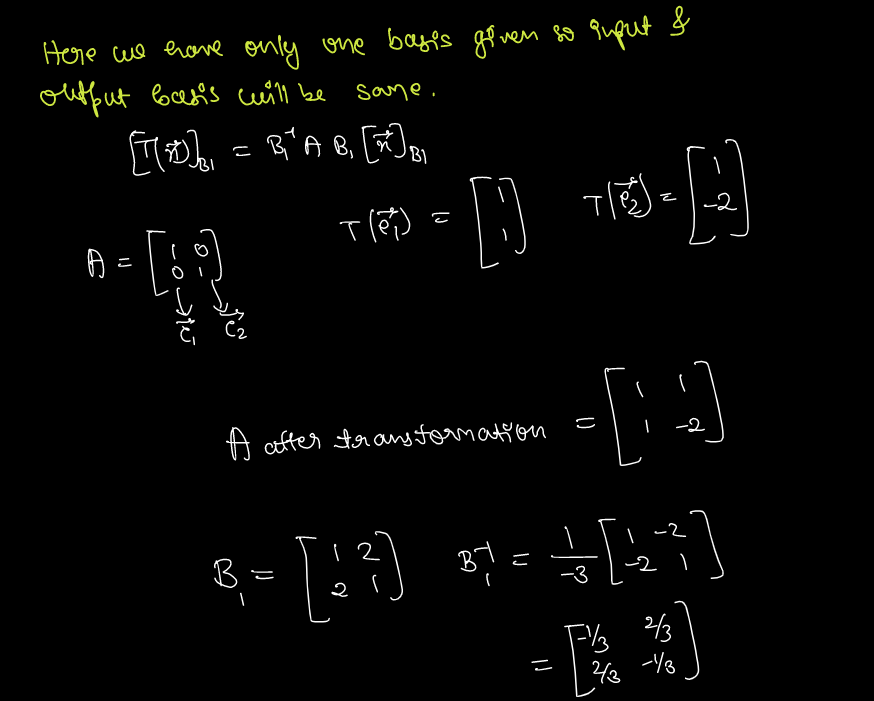 Here we have only one basis given so input &
output basis will be same.
[T(x⃗)]_B1 = B1⁻¹ A B1 [x⃗]_B1
T(e⃗1) = [1; 1] T(e⃗2) = [1; -2]
A = [1 0; 0 1]
e⃗1 e⃗2
A after transformation = [1 1; 1 -2]
B1 = [1 2; 2 1] B1⁻¹ = 1/-3 [1 -2; -2 1]
= [-1/3 2/3; 2/3 -1/3]